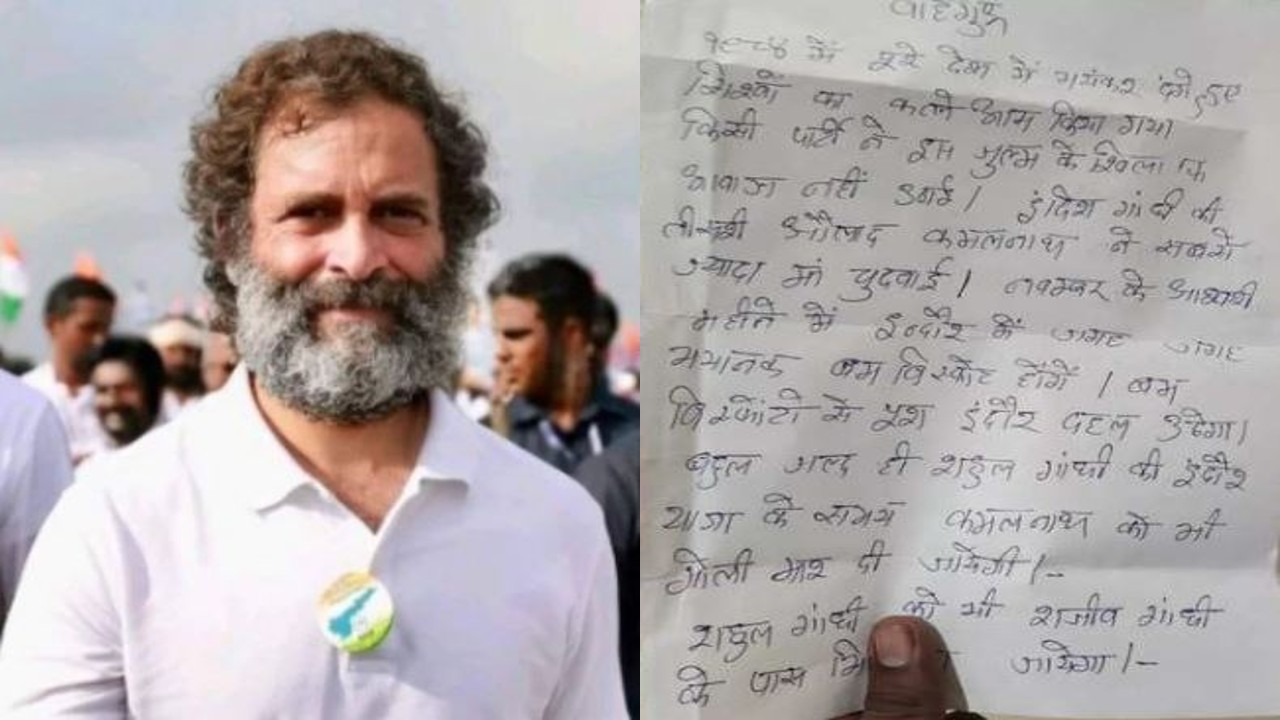 वाहेगुरू
१९८४ में पूरे देश में भयंकर दंगे हुए
सिक्खों का कत्ले आम किया गया
किसी पार्टी ने इस जुल्म के खिलाफ
आवाज नहीं उठाई। इंदिरा गांधी की
औलाद कमलनाथ ने सबसे
ज्यादा मां चुदवाई। नवम्बर के आखरी
महीने में इन्दौर में जगह जगह
भयानक बम विस्फोट होंगें। बम
विस्फोटो से पूरा इंदौर दहल उठेगा।
बहुत जल्द ही राहुल गांधी की इंदौर
यात्रा के समय कमलनाथ को भी
गोली मार दी जायेगी।-
राहुल गांधी को भी राजीव गांधी
के पास जायेगा।-